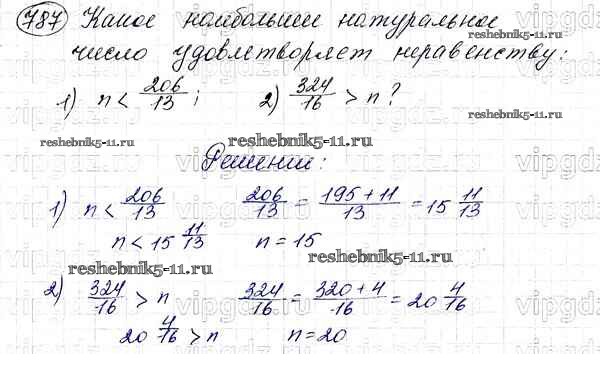 787 Какое наибольшее натуральное
число удовлетворяет неравенству:
reshebnik5-11.ru
1) n < 206/13 ; 2) 324/16 > n?
reshebnik5-11.ru reshebnik5-11.ru
Решение:
1) n < 206/13 206/13 = (195+11)/13 = 15 11/13
n < 15 11/13 n = 15
reshebnik5-11.ru
2) 324/16 > n 324/16 = (320+4)/16 = 20 4/16
20 4/16 > n n = 20
reshebnik5-11.ru